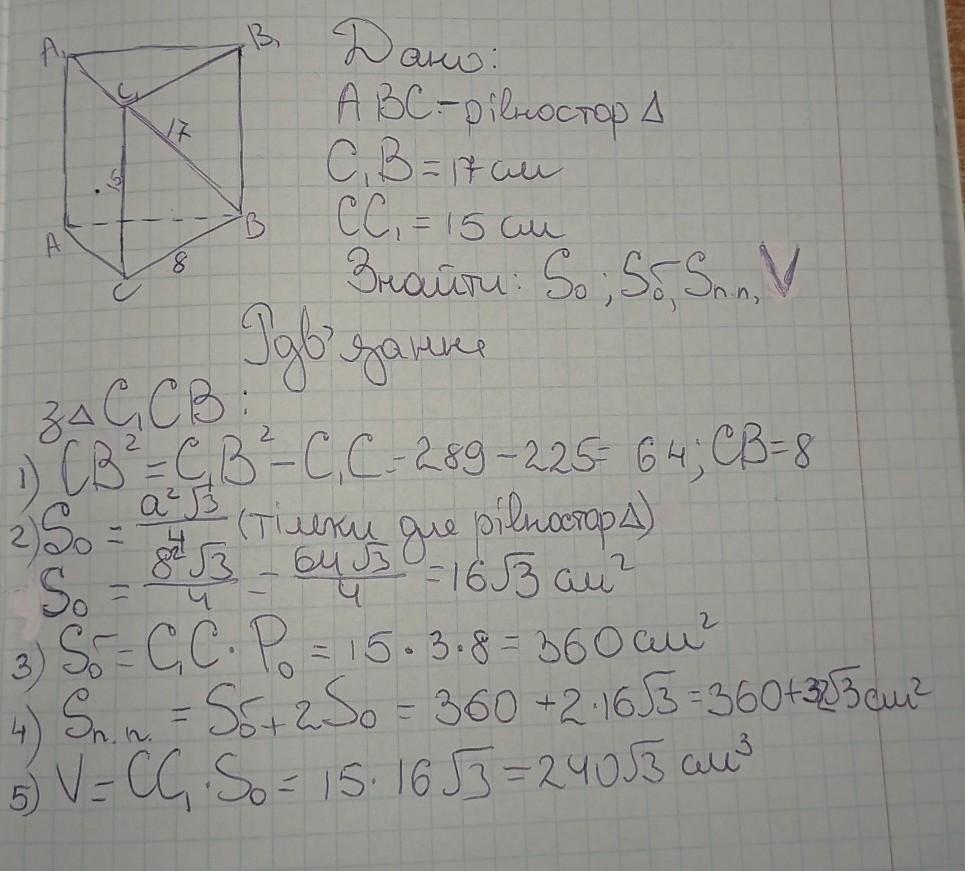 A₁
B₁
C₁
17
5
A
B
8
C
Дано:
ABC - рівностор Δ
C₁B = 17 см
CC₁ = 15 см
Знайти: Sₒ; Sб, Sп.п, V
Розв'язання
з Δ C₁CB:
1) CB² = C₁B² - C₁C = 289 - 225 = 64; CB = 8
2) Sₒ = a²√3/4 (тільки для рівностор Δ)
Sₒ = 8²√3/4 = 64√3/4 = 16√3 см²
3) Sб = C₁C · Pₒ = 15 · 3 · 8 = 360 см²
4) Sп.п. = Sб + 2Sₒ = 360 + 2·16√3 = 360 + 32√3 см²
5) V = CC₁ · Sₒ = 15 · 16√3 = 240√3 см³